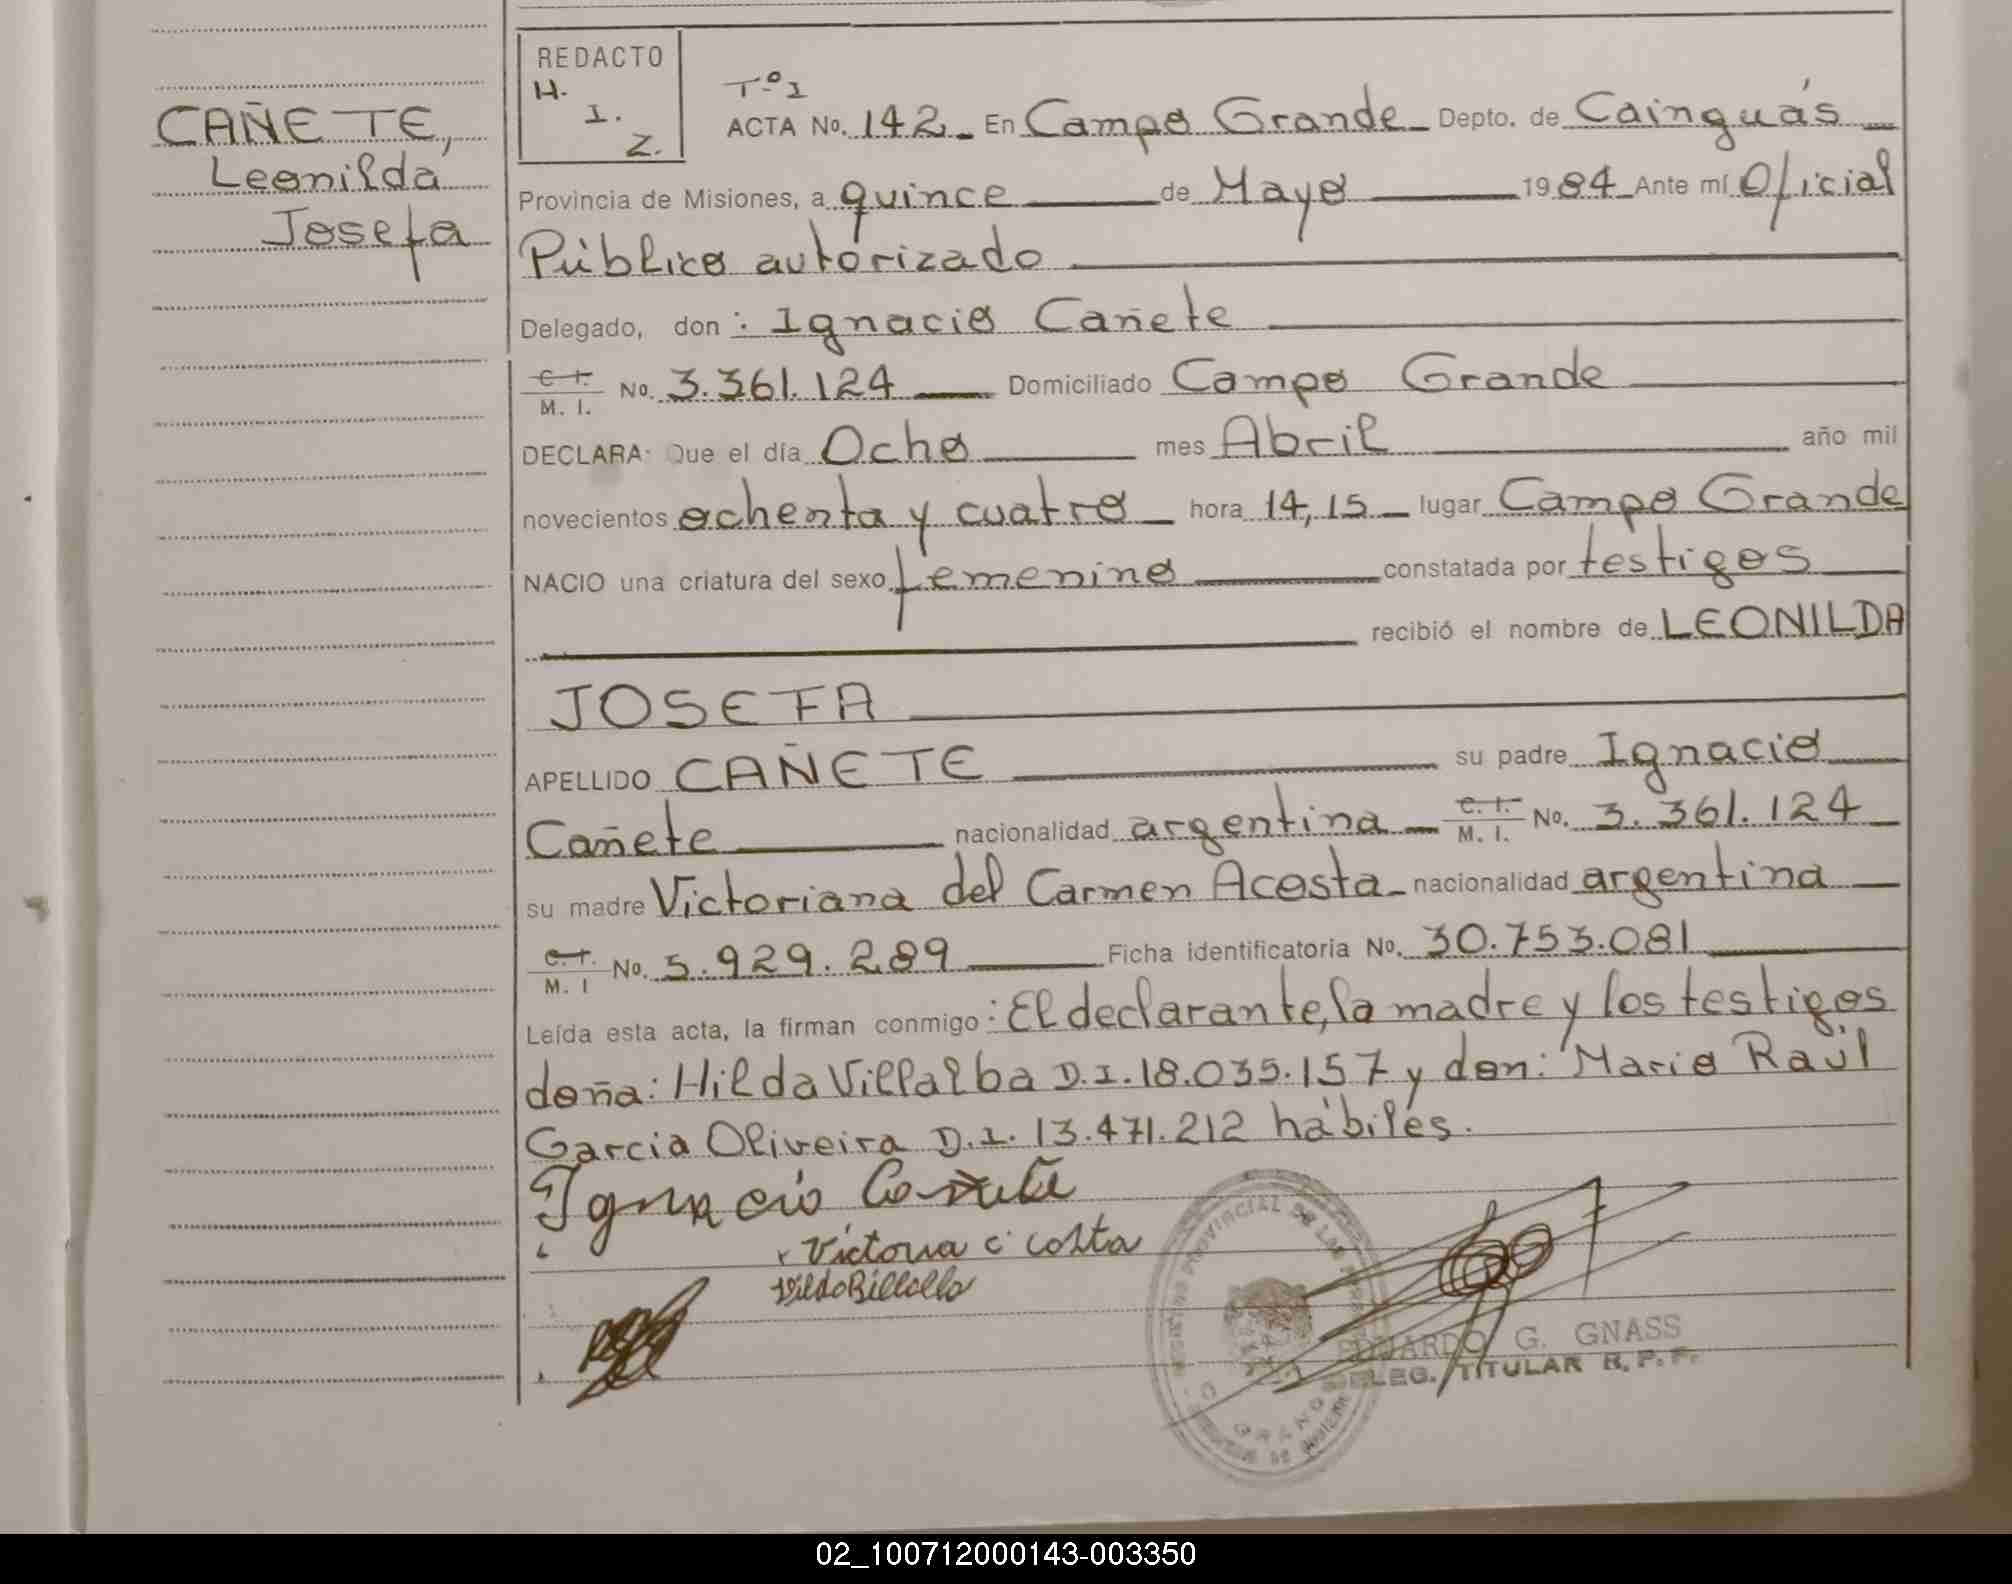 CAÑETE,
Leonilda
Josefa
REDACTO
H.
I.
Z.
Tº I
ACTA No. 142 En Campo Grande Depto. de Cainguás
Provincia de Misiones, a quince de Mayo 1984 Ante mí Oficial
Público autorizado
Delegado, don: Ignacio Cañete
C. I. M. I. No. 3.361.124 Domiciliado Campo Grande
DECLARA: Que el día Ocho mes Abril año mil
novecientos ochenta y cuatro hora 14,15 lugar Campo Grande
NACIO una criatura del sexo femenino constatada por testigos
recibió el nombre de LEONILDA
JOSEFA
APELLIDO CAÑETE su padre Ignacio
Cañete nacionalidad argentina C. I. M. I. No. 3.361.124
su madre Victoriana del Carmen Acosta nacionalidad argentina
C. I. M. I No. 5.929.289 Ficha identificatoria No. 30.753.081
Leída esta acta, la firman conmigo: El declarante, la madre y los testigos
doña: Hilda Villalba D.I. 18.035.157 y don: Mario Raúl
Garcia Oliveira D.I. 13.471.212 hábiles.
Ignacio Cañete
Victoria c costa
EDUARDO G. GNASS
DELEG. TITULAR R.P.P.
02_100712000143-003350